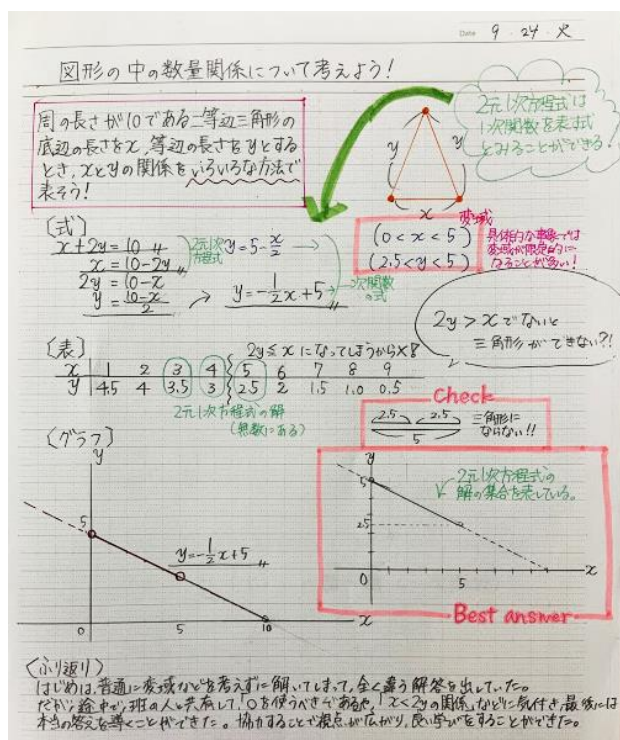 Date 9・24・火
図形の中の数量関係について考えよう!
周の長さが10である二等辺三角形の
底辺の長さをx,等辺の長さをyとする
とき,xとyの関係をいろいろな方法で
表そう!
y y
x
2元1次方程式は
1次関数を表す式
とみることができる!
〔式〕
x+2y=10
x=10-2y
2y=10-x
y=10-x/2
2元1次方程式
y=5-x/2
y=-1/2x+5
1次関数の式
変域
(0<x<5)
(2.5<y<5)
具体的な事象では
変域が限定的に
なることが多い!
2y>xでないと
三角形ができない?!
〔表〕
2y≦xになってしまうから×
x 1 2 3 4 5 6 7 8 9
y 4.5 4 3.5 3 2.5 2 1.5 1.0 0.5
2元1次方程式の解
(無数にある)
Check
2.5 2.5
5
三角形に
ならない!!
〔グラフ〕
y
5
y=-1/2x+5
0 5 10 x
y
5
2.5
0 5 x
2元1次方程式の
解の集合を表している。
Best answer
〈ふり返り〉
はじめは,普通に変域などを考えずに解いてしまって,全く違う解答を出していた。
だが,途中で,班の人と共有して,「○を使うべきであるや,「x<2yの関係」などに気付き,最後には
本当の答えを導くことができた。協力することで視点が広がり,良い学びをすることができた。